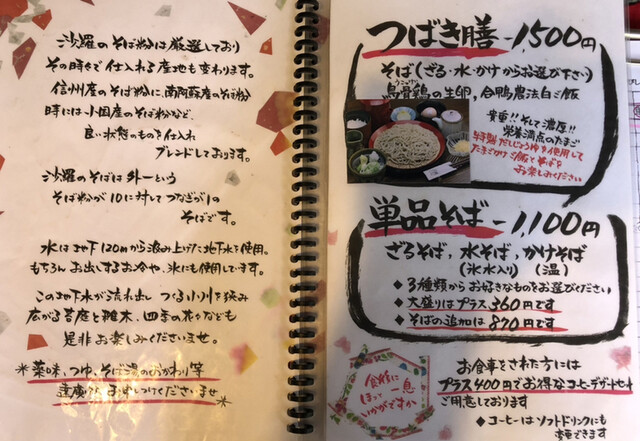 沙羅のそば粉は厳選しており
その時々で仕入れる産地も変わります。
信州産のそば粉に、南阿蘇産のそば粉
時には小国産のそば粉など、
良い状態のものを仕入れ
ブレンドしております。
沙羅のそばは外一という
そば粉が10に対してつなぎが1の
そばです。
水は地下120mから汲み上げた地下水を使用。
もちろんお出しするお冷や、氷にも使用しています。
この地下水が流れ出しつくる小川を挟み
広がる芝庭と雑木、四季の花々なども
是非お楽しみくださいませ。
*薬味、つゆ、そば湯のおかわり等
遠慮なくお申しつけくださいませ*
つばき膳-1,500円
そば(ざる・水・かけからお選び下さい)
烏骨鶏の生卵、合鴨農法白ご飯
うこっけい
貴重!!そして濃厚!!
栄養満点のたまご
特製だしじょうゆを使用して
たまごかけご飯とそばを
お楽しみください
単品そば-1,100円
ざるそば、水そば、かけそば
(氷水入り) (温)
◆3種類からお好きなものをお選びください
◆大盛りはプラス360円です
◆そばの追加は870円です
食後に
ほっと一息
いかがですか
お食事をされた方には
プラス400円でお得なコーヒーデザートセット
ご用意しております
◆コーヒーはソフトドリンクにも
変更できます